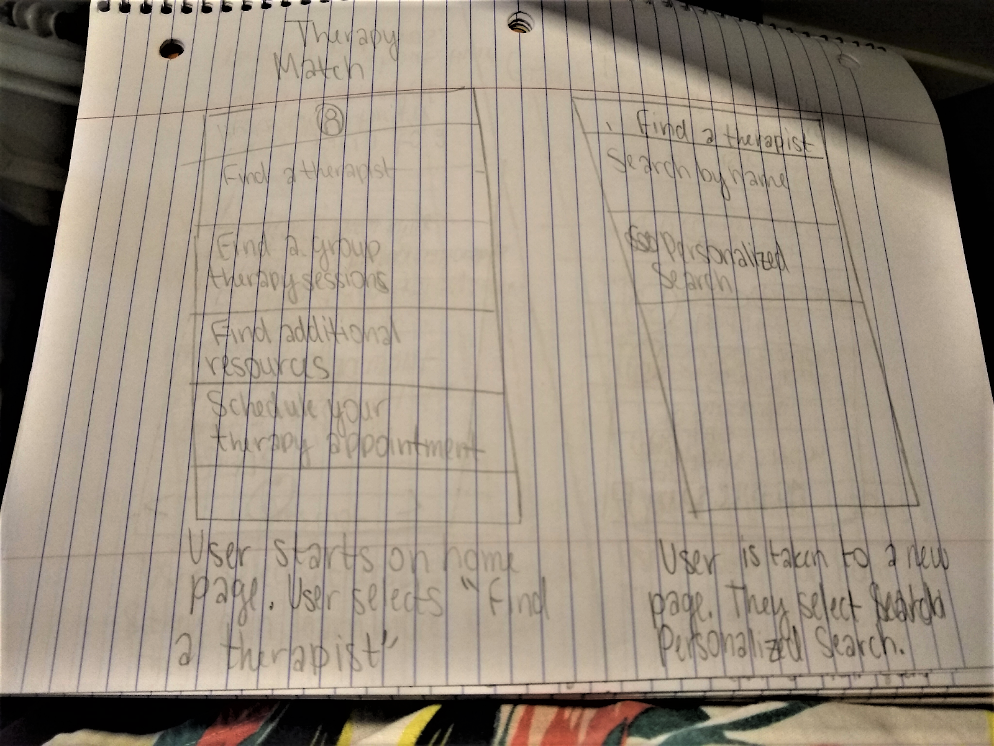 Therapy
Match
Find a therapist
Find a group
therapy sessions
Find additional
resources
Schedule your
therapy appointment
User starts on home
page. User selects "Find
a therapist"
Find a therapist
Search by name
Personalized
Search
User is taken to a new
page. They select Search
Personalized Search.